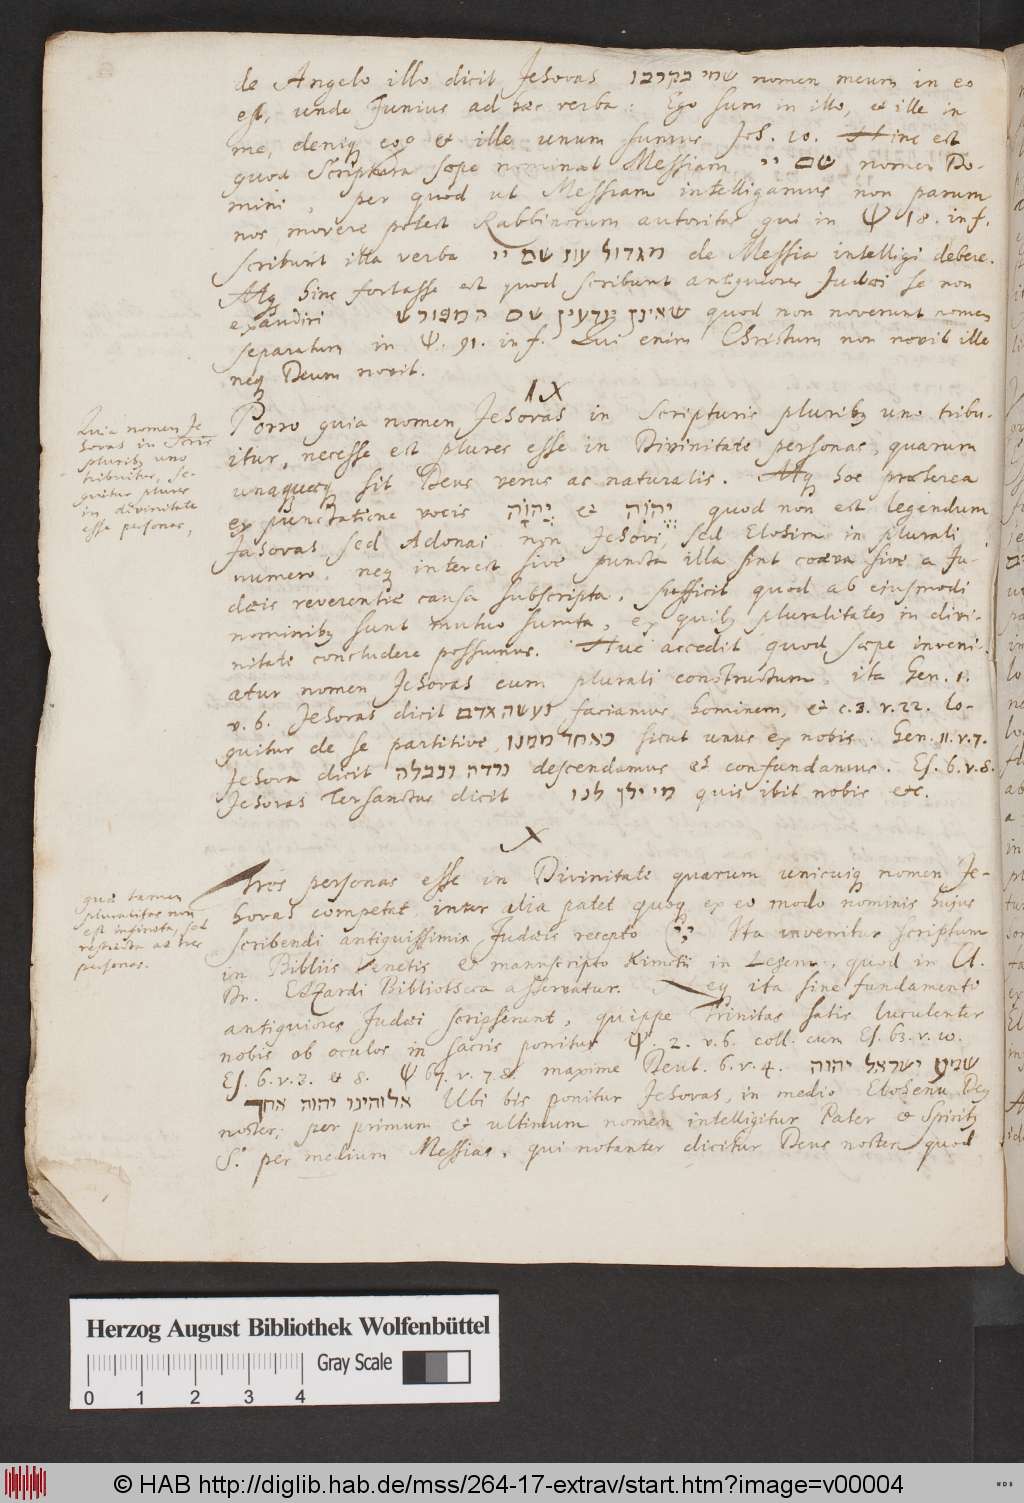 de Angelo illo dicit Jehovas שמי בקרבו nomen meum in eo
est, unde Junius ad haec verba: Ego sum in illo, et ille in
me, deniq ego et ille unum sumus Joh. 10. Hinc est
quod Scriptura saepe nominat Messiam שם יי nomen Do-
mini, per quod ut Messiam intelligamus non parum
nos movere potest Rabbinorum autoritas qui in Ψ 18. in f.
scribunt illa verba מגדול עוז שם יי de Messia intelligi debere.
Atq hinc fortasse est quod scribunt antiquiores Judaei se non
exaudiri שאינן יודעין שם המפורש quod non noverunt nomen
separatum in Ψ. 91. in f. Qui enim Christum non novit ille
neq Deum novit.
IX
Quia nomen Je
hovas in Scris
pluribq uno
tribuitur, se-
quitur plures
in divinitate
esse personas,
Porro quia nomen Jehovas in Scripturis pluribq uno tribu-
itur, necesse est plures esse in Divinitate personas, quarum
unaquaeq sit Deus verus ac naturalis. Atq hoc praeterea
ex punctatione vocis יְהוָֹה et יֱהוִֹה quod non est legendum
Jahovas sed Adonai non Jehovi, sed Elohim in plurali
numero. neq interest sive puncta illa sint coaeva sive a Ju-
daeis reverentiae causa subscripta. sufficit quod ab ejusmodi
nominibq sunt mutuo sumta, ex quibq pluralitatem in divi-
nitate concludere possumus. Huc accedit quod saepe inveni-
atur nomen Jehovas cum plurali constructum, ita Gen. 1.
v. 6. Jehovas dicit נעשה אדם faciamus hominem, et c. 3. v. 22. lo-
quitur de se partitive, כאחד ממנו sicut unus ex nobis. Gen. 11. v. 7.
Jehova dicit נרדה ונבלה descendamus et confundamus. Es. 6. v. 8.
Jehovas Tersanctus dicit מי ילך לנו quis ibit nobis etc.
X
quae tamen
pluralitas non
est infinita, sed
restricta ad tres
personas.
Tres personas esse in Divinitate quarum unicuiq nomen Je-
hovas competat inter alia patet quoq ex eo modo nominis hujus
scribendi antiquissimis Judaeis recepto Ita invenitur scriptum
in Bibliis Venetis et manuscripto Kimchi in Legem, quod in Cl.
Dn. Edzardi Bibliotheca asservatur. Neq ita sine fundamento
antiquiores Judaei scripserunt, quippe Trinitas satis luculenter
nobis ob oculos in sacris ponitur Ψ. 2. v. 6. coll. cum Es. 63. v. 10.
Es. 6. v. 3. et 8. Ψ 67. v. 7. 8. maxime Deut. 6. v. 4. שמע ישראל יהוה
אלוהינו יהוה אחד Ubi bis ponitur Jehovas, in medio Elohenu Deq
noster, per primum et ultimum nomen intelligitur Pater et Spiritq
S. per medium Messias, qui notanter dicitur Deus noster quod
Herzog August Bibliothek Wolfenbüttel
Gray Scale
0 1 2 3 4
© HAB http://diglib.hab.de/mss/264-17-extrav/start.htm?image=v00004